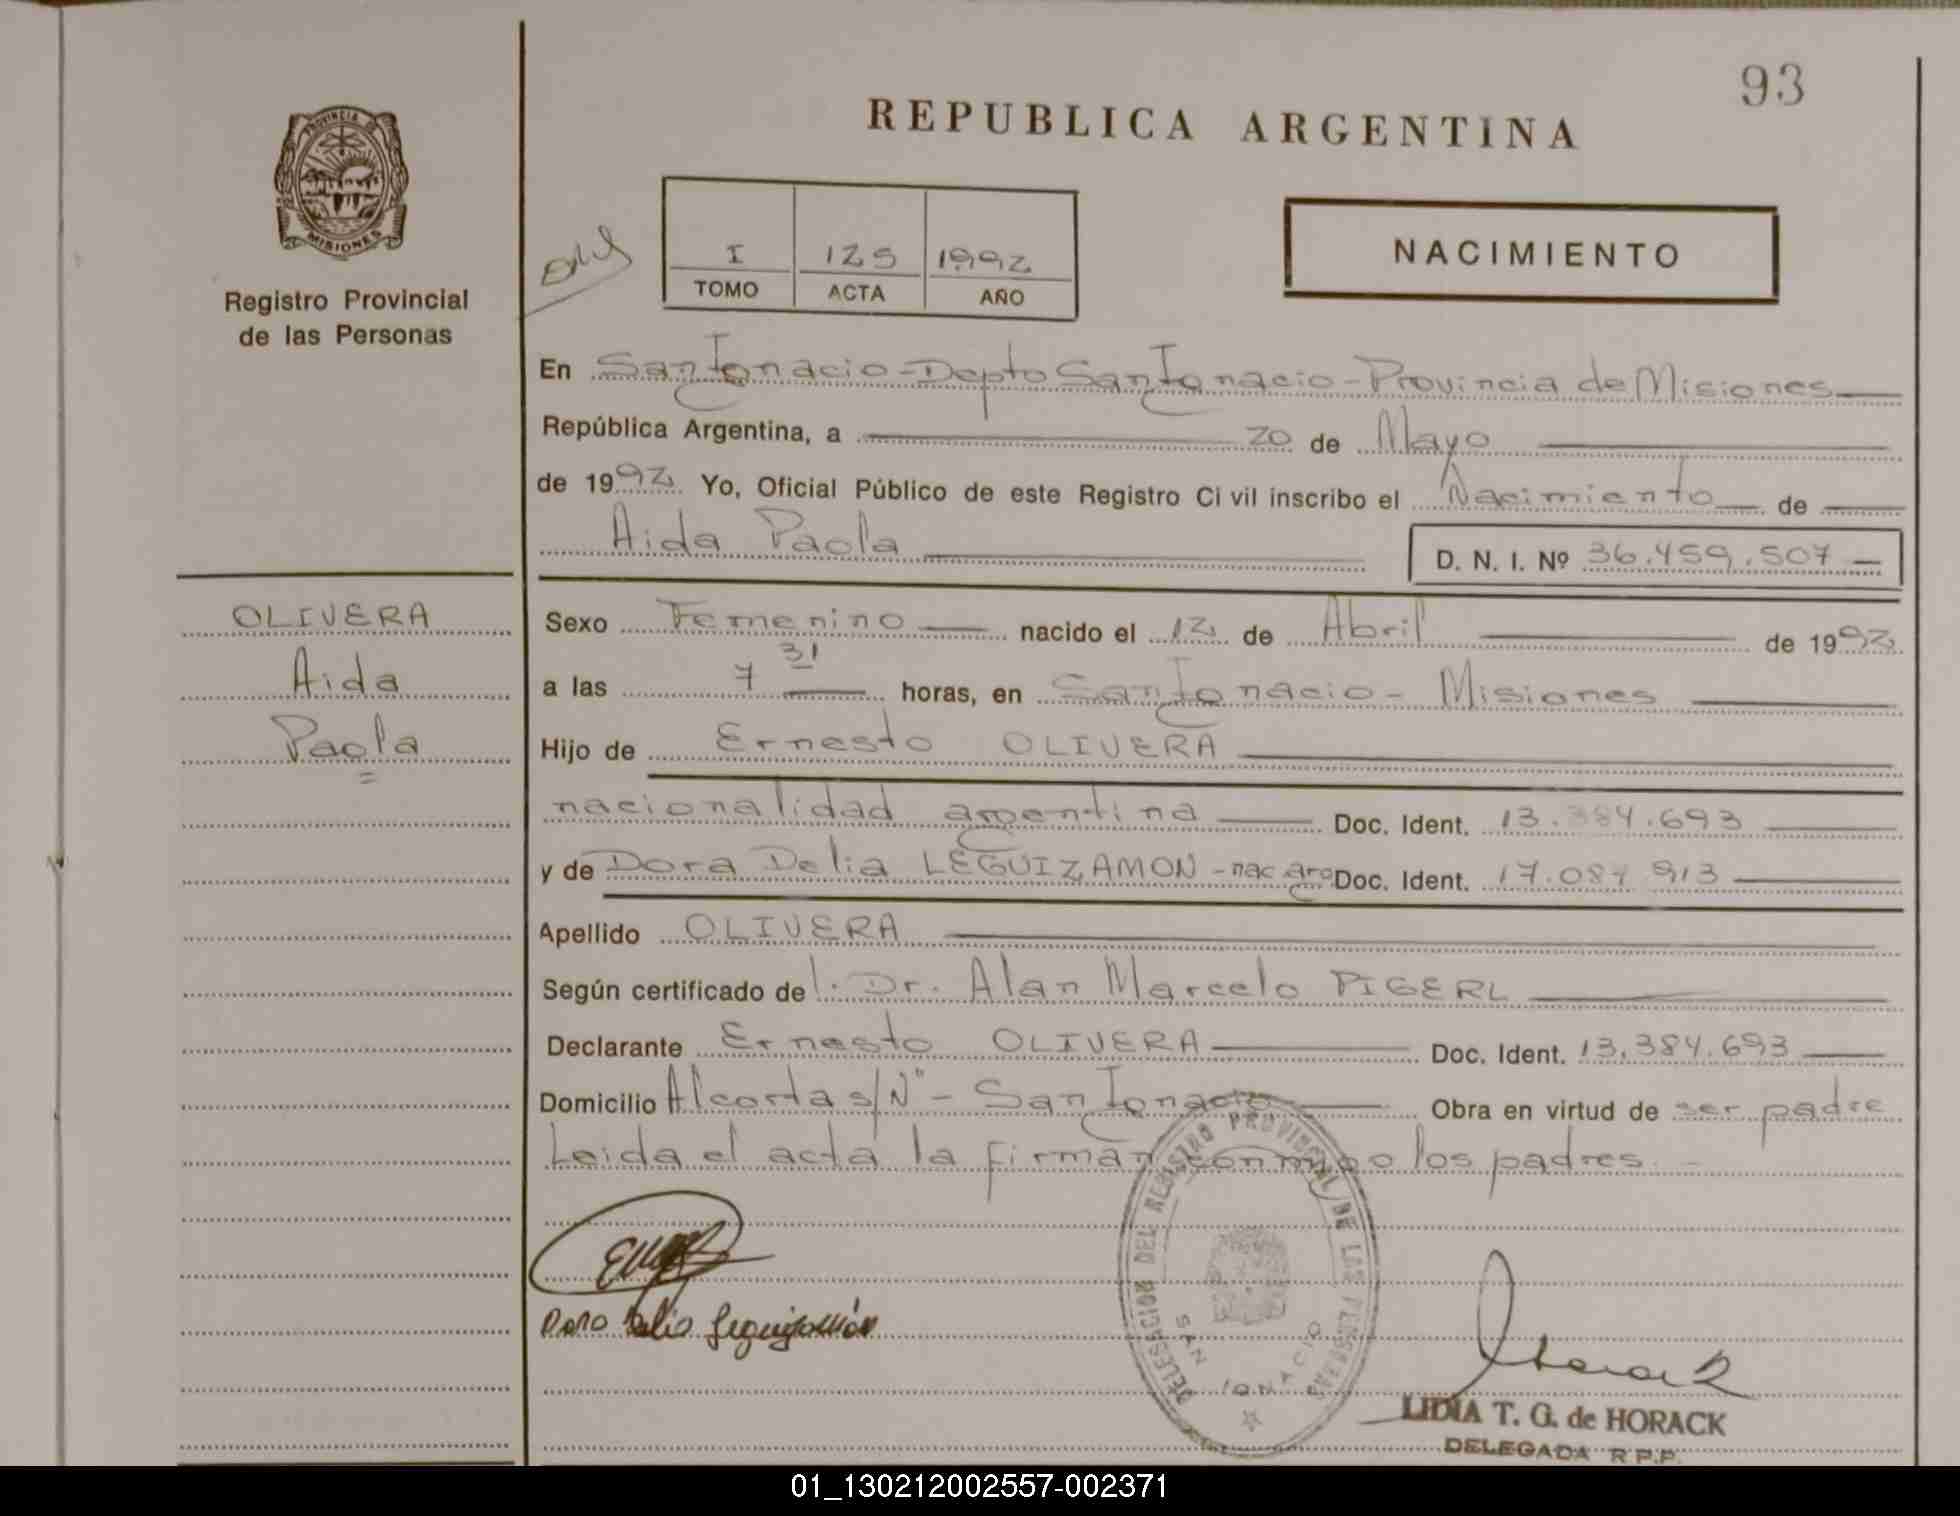 93
REPUBLICA ARGENTINA
PROVINCIA DE
MISIONES
Registro Provincial
de las Personas
I 125 1992
TOMO ACTA AÑO
NACIMIENTO
En San Ignacio - Depto San Ignacio - Provincia de Misiones
República Argentina, a 20 de Mayo
de 1992 Yo, Oficial Público de este Registro Civil inscribo el Nacimiento de
Aida Paola D. N. I. Nº 36.459.507
OLIVERA
Aida
Paola
Sexo Femenino nacido el 12 de Abril de 1992
a las 7 31 horas, en San Ignacio - Misiones
Hijo de Ernesto OLIVERA
nacionalidad argentina Doc. Ident. 13.384.693
y de Dora Delia LEGUIZAMON - nac arg Doc. Ident. 17.084.913
Apellido OLIVERA
Según certificado del. Dr. Alan Marcelo PIGERL
Declarante Ernesto OLIVERA Doc. Ident. 13.384.693
Domicilio Alcorta s/Nº - San Ignacio Obra en virtud de ser padre
Leida el acta la firman conmigo los padres.
DELEGACION DEL REGISTRO PROVINCIAL DE LAS PERSONAS
SAN IGNACIO
Dora Delia Leguizamón
Horack
LIDIA T. G. de HORACK
DELEGADA R.P.P.
01_130212002557-002371